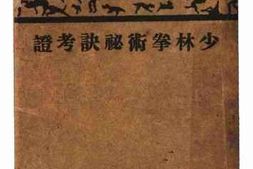 少林拳術祕訣考證